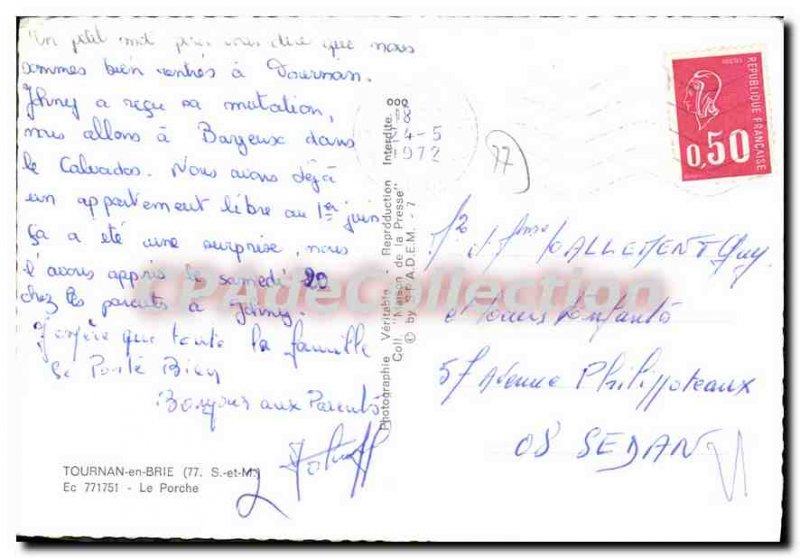 Un petit mot pour vous dire que nous
sommes bien rentrés à Tournan.
Jhny a reçu sa mutation,
nous allons à Bayeux dans
le Calvados. Nous avons déjà
un appartement libre au 1er juin
ça a été une surprise, nous
l'avons appris le samedi 29
chez les parents à Jhny.
J'espère que toute la famille
se Porte Bien
Bonjour aux Parents
TOURNAN-en-BRIE (77. S.-et-M.)
Ec 771751 - Le Porche
Photographie Véritable - Reproduction Interdite
Coll. "Maison de la Presse"
© by S.P.A.D.E.M. - 7
18
24-5
1972
77
REPUBLIQUE FRANÇAISE
0,50
Mr et Mme LALLEMENT Guy
et Leurs Enfants
57 Avenue Philippoteaux
08 SEDAN
CPAdeCollection